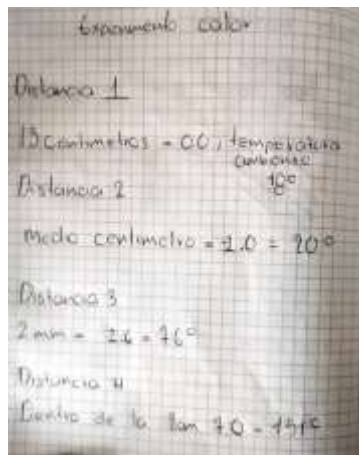 Experimento calor
Distancia 1
13 centimetros = 00, temperatura
ambiente
18°
Distancia 2
medo centimetro = 1.0 = 20°
Distancia 3
2 mm =
Distancia 4
Dentro de la 7.0 =